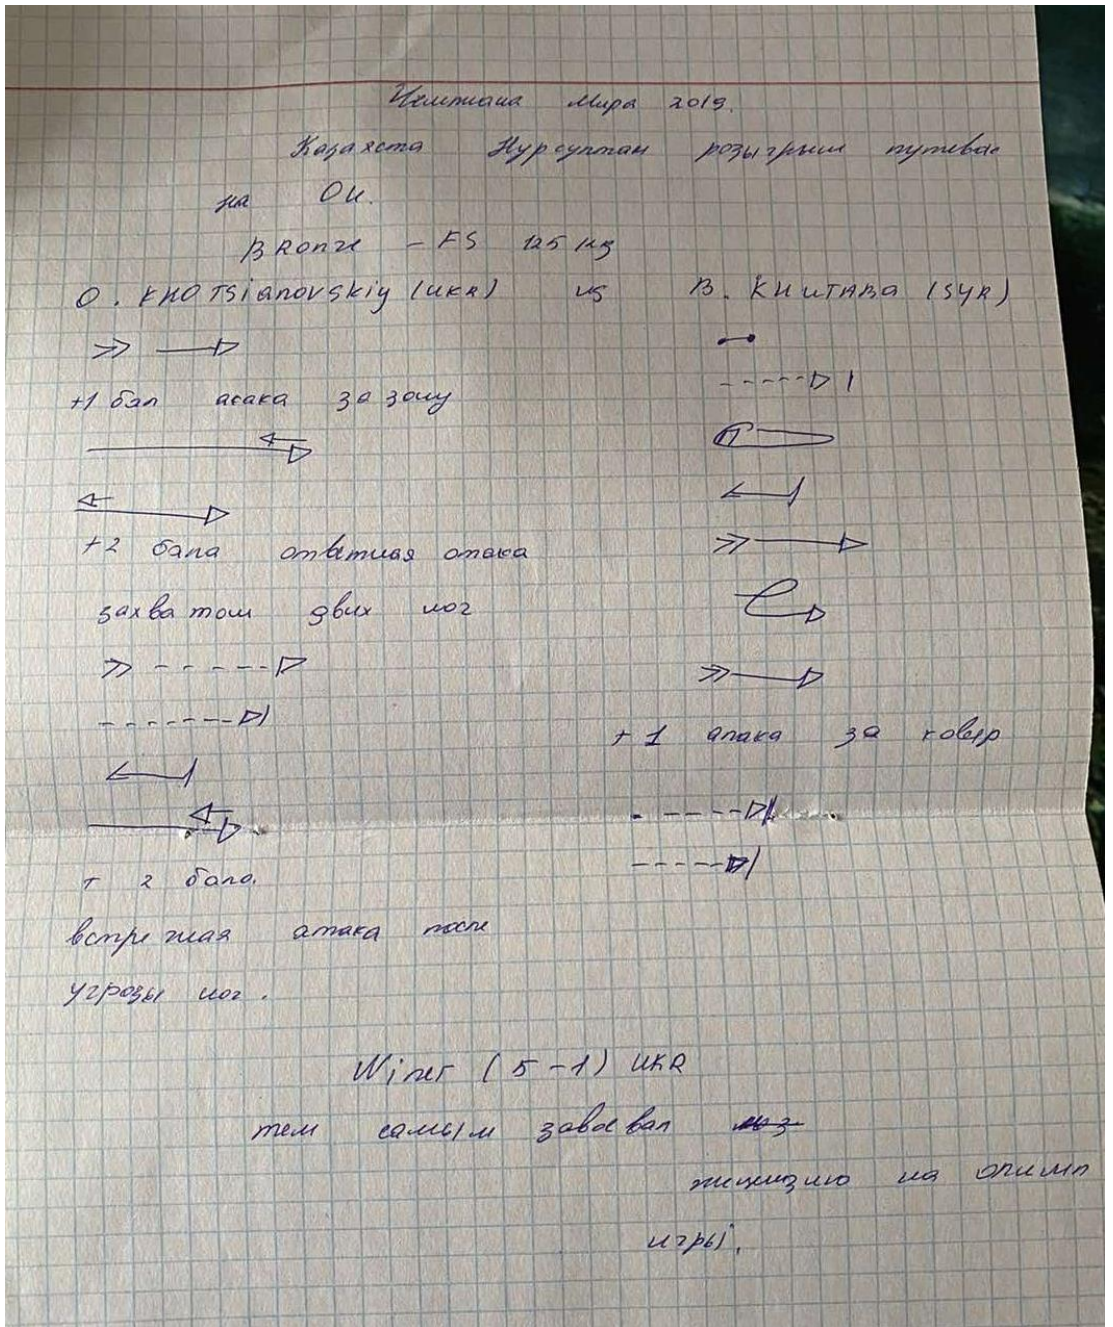 Чемпиана Мира 2019.
Казахста Нурсултан розыгрыш путевае
на Ои.
BRonze - FS 125 кg
O. KHOTSianovskiy (UKR) vs B. KHUTABA (SYR)
+1 бал атака за зону
+2 бала ответная атака
захватом двих ног
+1 атака за ковер
+ 2 бала.
встречная атака после
угрозы ног.
Winer (5-1) UKR
тем самым завоевал
лицинзию на олимп
игры.